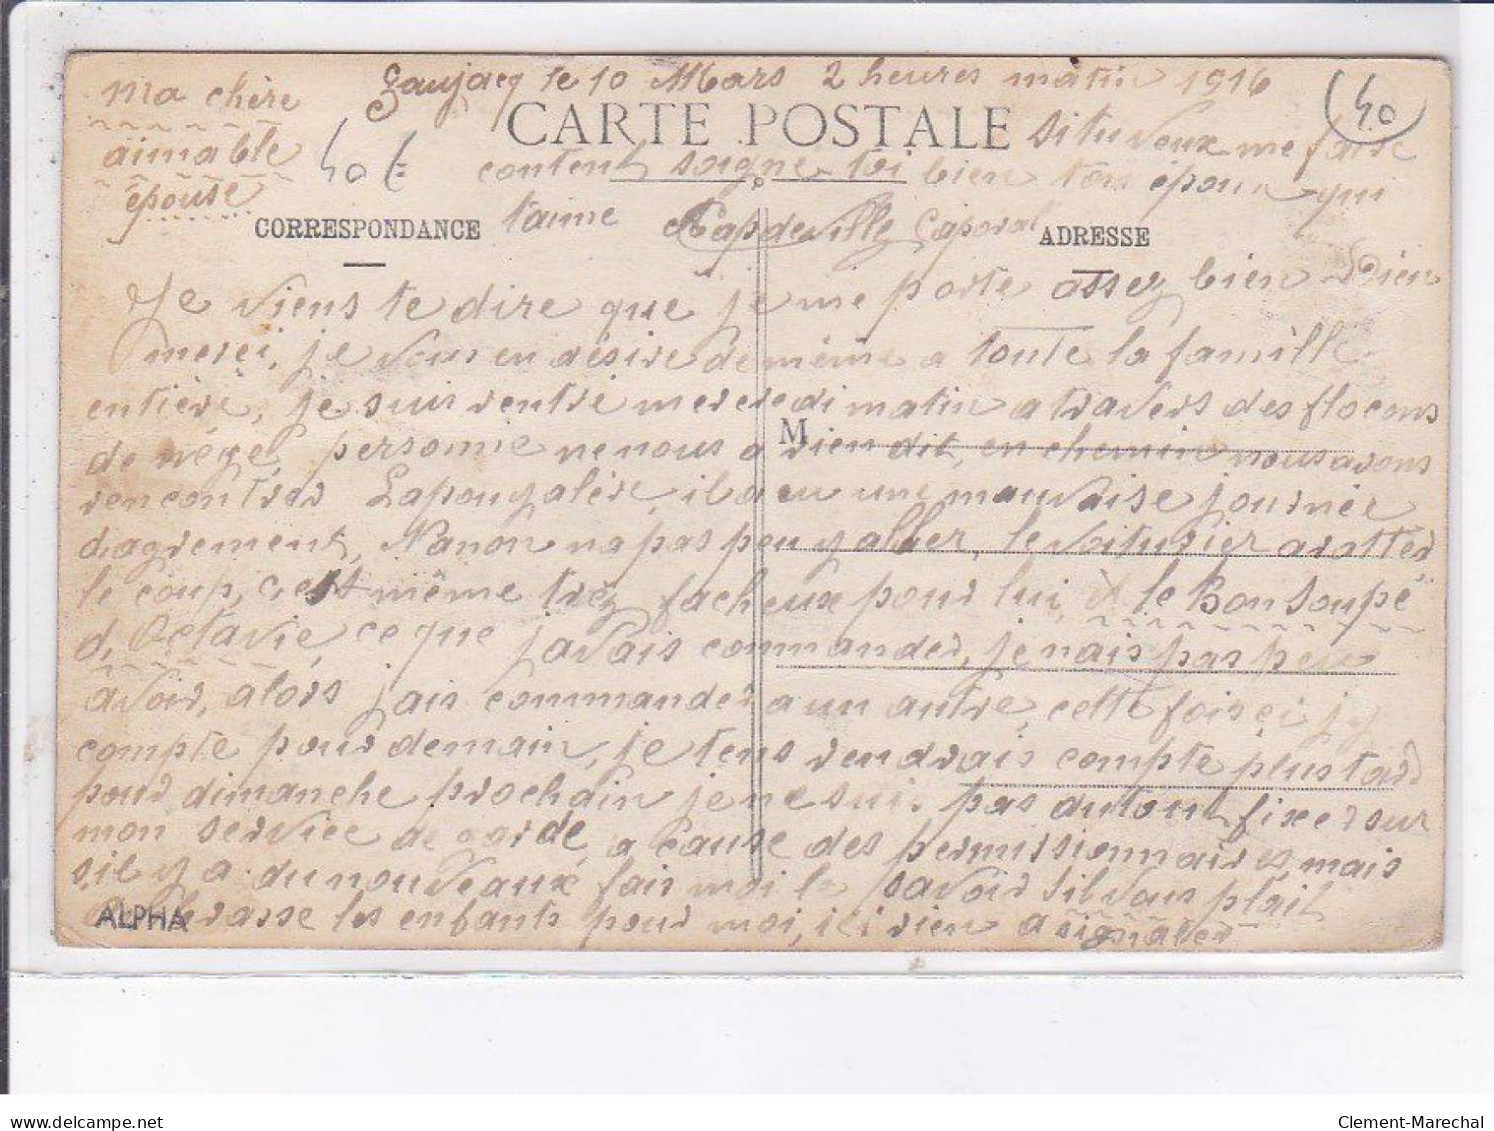 Gaujacq le 10 Mars 2 heures matin 1916
ma chère
aimable
épouse
40 €
(40)
CARTE POSTALE
si tu veux me faire
content soigne toi bien ton époux qui
t'aime Capdeville Caporal
CORRESPONDANCE
ADRESSE
Je viens te dire que je me porte assez bien Dieu
merci, je vous en désire de même a toute la famille
entière, je suis rentré mercredi matin a travers des flocons
de nége, personne ne nous a rien dit, en chemin nous avons
M
rencontrer Lapouyalère, il a eu une mauvaise journée
dagrement, Nanon na pas peu y aller, le voiturier a rotter
le coup, c'est même trez facheux pour lui, le Bon Soupé
d, Octavie, ce que javais commander, je nais pas peu
avoir, alors jais commander a un autre, cette fois ci jy
compte pour demain, je tens rendrais compte plus tard
pour dimanche prochain je ne suis pas du tout fixer sur
mon service de garde, a cause des permissionnaires, mais
sil y a du nouveaux fais moi le savoir sil vous plait
embrasse les enfants pour moi, ici rien a signaler
ALPHA
delcampe.net
Clement-Marechal